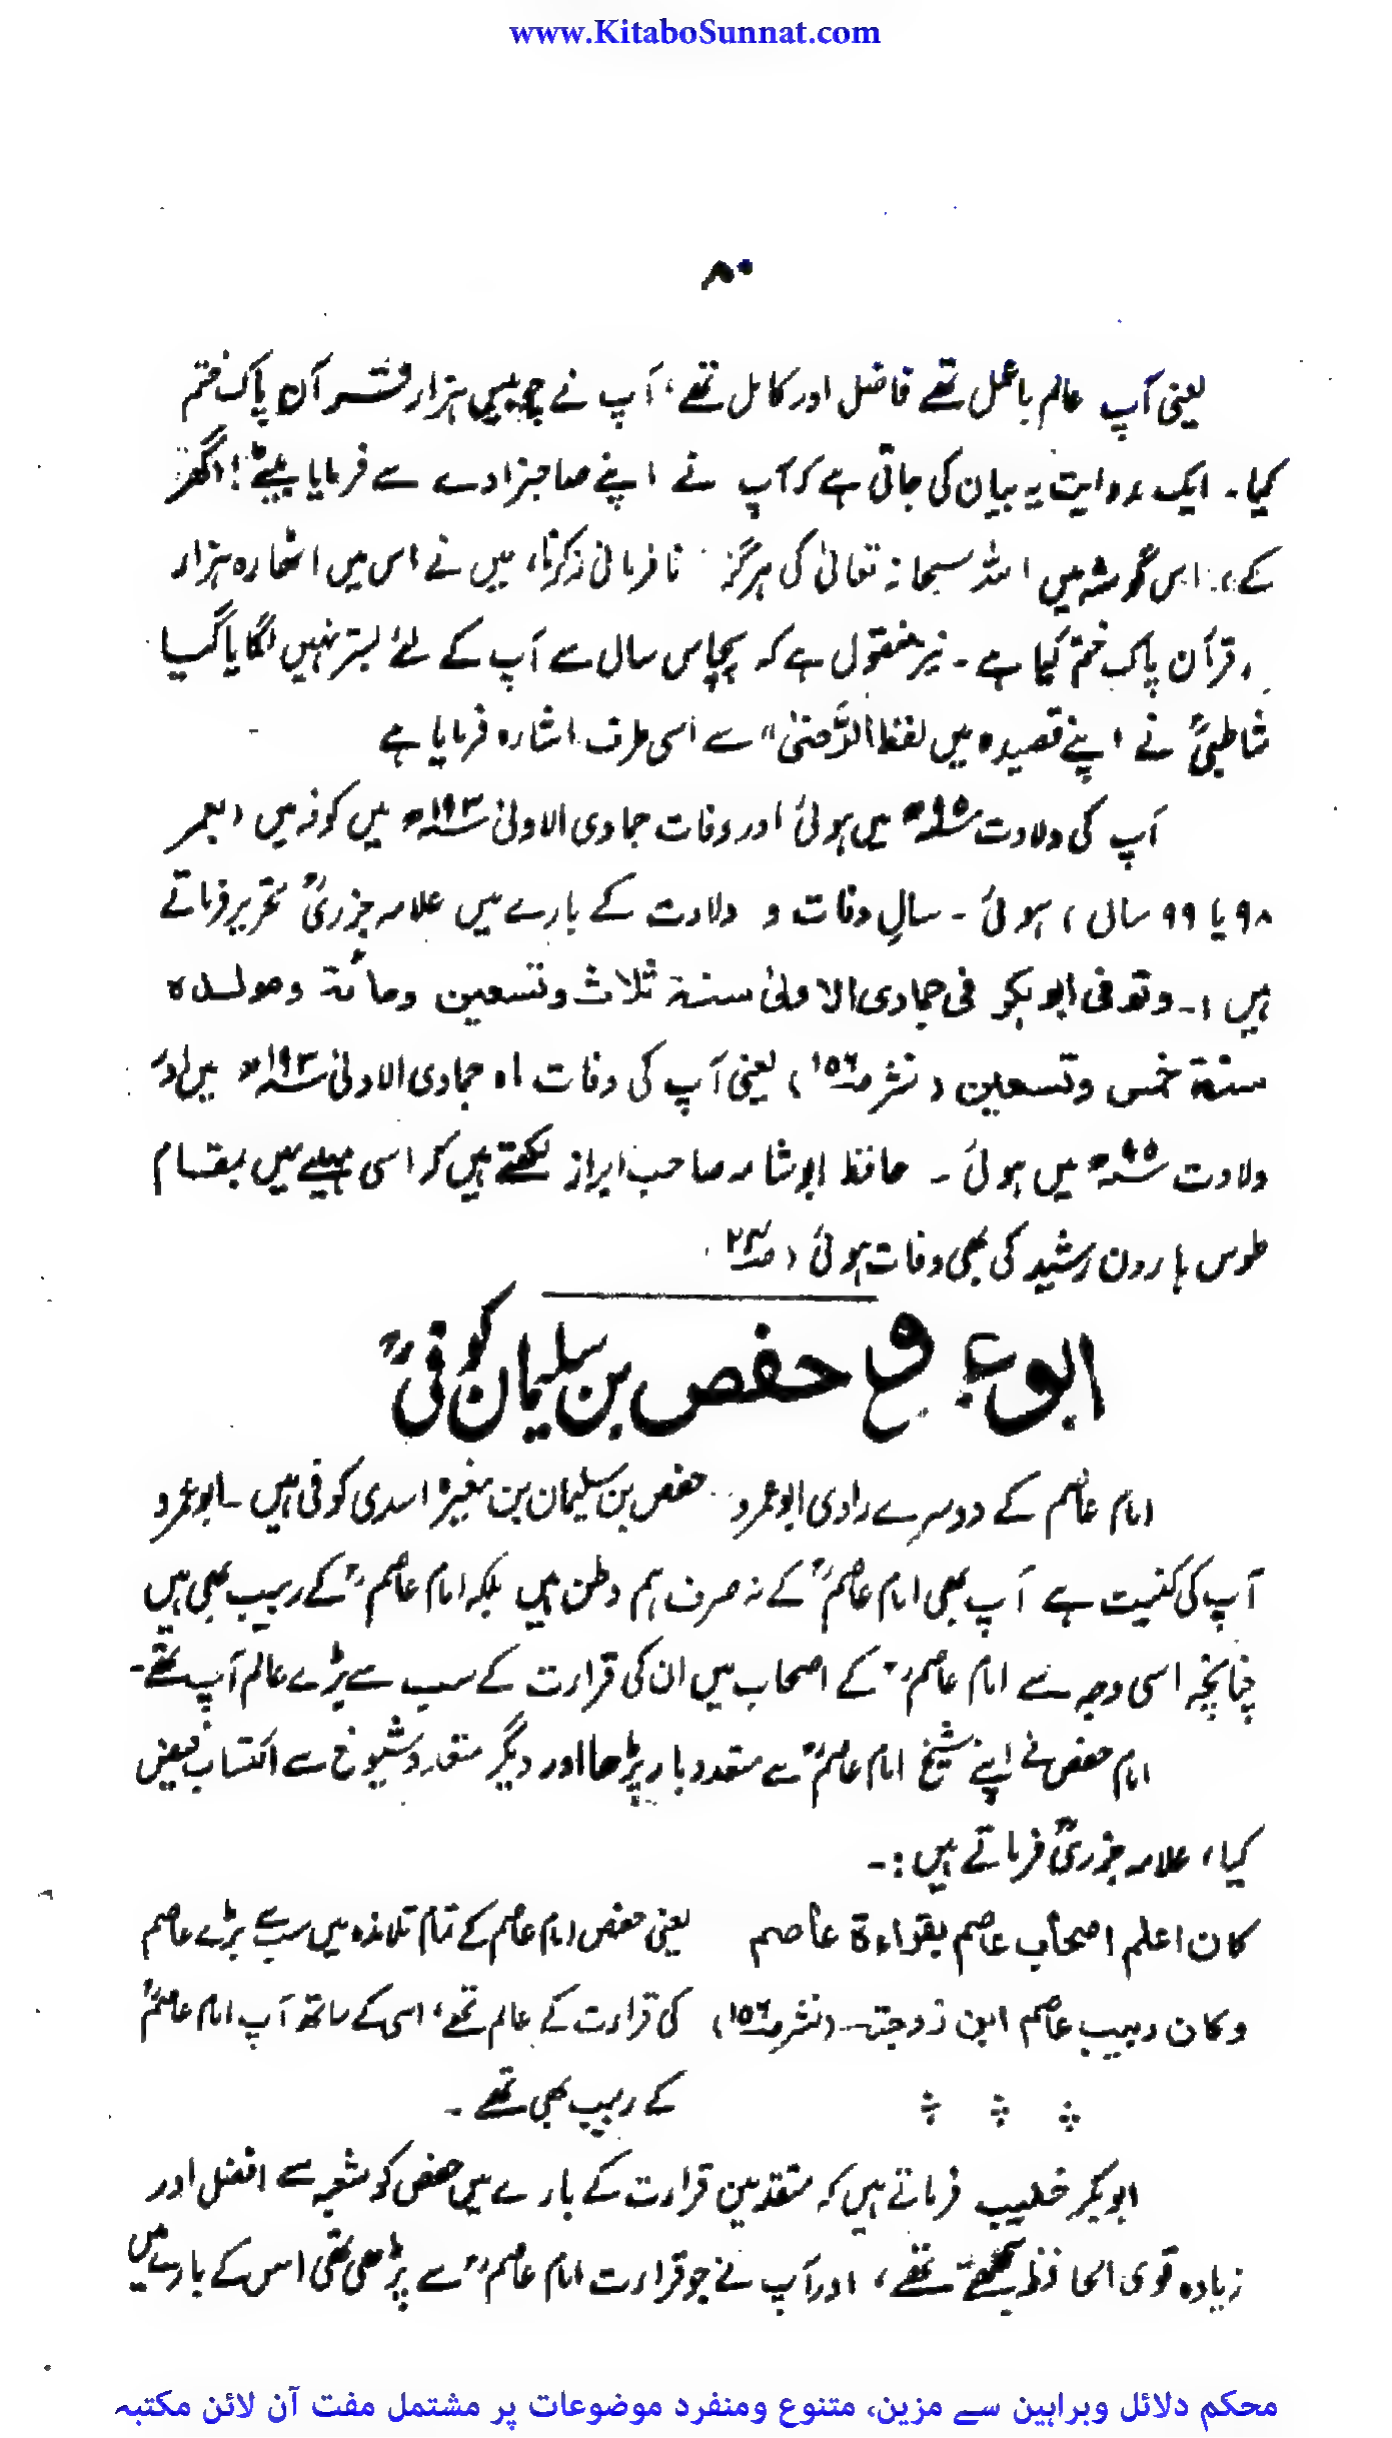 www.KitaboSunnat.com
۸۰
یعنی آپ عالم باعمل تھے فاضل اور کامل تھے، آپ نے چوبیس ہزار قرآن پاک ختم
کیا۔ ایک روایت یہ بیان کی جاتی ہے کہ آپ نے اپنے صاحبزادے سے فرمایا بیٹے! اگھر
کے، اس گوشہ میں اللہ سبحانہ تعالیٰ کی ہرگز نافرمانی نہ کرنا، میں نے اس میں اٹھارہ ہزار
قرآن پاک ختم کیا ہے۔ نیز منقول ہے کہ پچاس سال سے آپ کے لئے بستر نہیں لگایا گیا
شاطبیؒ نے اپنے قصیدہ میں لفظ الرّضیٰ" سے اسی طرف اشارہ فرمایا ہے
آپ کی ولادت ۹۵ھ میں ہوئی اور وفات جمادی الاولیٰ ۱۹۳ھ میں کوفہ میں (بعمر
۹۸ یا ۹۹ سال) ہوئی۔ سالِ وفات و ولادت کے بارے میں علامہ جزریؒ تحریر فرماتے
ہیں:۔ وتوفی ابوبکر فی جمادی الاولیٰ سنۃ ثلاث وتسعین ومائۃ ومولدہ
سنۃ خمس وتسعین (نشر ص۱۵۶) یعنی آپ کی وفات ماہ جمادی الاولیٰ ۱۹۳ھ میں اور
ولادت ۹۵ھ میں ہوئی۔ حافظ ابوشامہ صاحب ابراز لکھتے ہیں کہ اسی مہینے میں بمقام
طوس ہارون رشید کی بھی وفات ہوئی (ص۲۳)
ابو عمرو حفص بن سلیمان کوفیؒ
امام عاصم کے دوسرے راوی ابوعمرو حفص بن سلیمان بن مغیرہ اسدی کوفی ہیں۔ ابوعمرو
آپ کی کنیت ہے آپ بھی امام عاصمؒ کے نہ صرف ہم وطن ہیں بلکہ امام عاصمؒ کے ربیب بھی ہیں
چنانچہ اسی وجہ سے امام عاصمؒ کے اصحاب میں ان کی قرارت کے سب سے بڑے عالم آپ تھے۔
امام حفص نے اپنے شیخ امام عاصمؒ سے متعدد بار پڑھا اور دیگر متعدد شیوخ سے اکتساب فیض
کیا، علامہ جزریؒ فرماتے ہیں:۔
کان اعلم اصحاب عاصم بقراءۃ عاصم یعنی حفص امام عاصم کے تمام تلامذہ میں سب سے بڑے عاصم
وکان ربیب عاصم ابن زوجتہ۔ (نشر ص۱۵۶) کی قرارت کے عالم تھے، اسی کے ساتھ آپ امام عاصمؒ
کے ربیب بھی تھے۔
ابوبکر خطیب فرماتے ہیں کہ متقدمین قرارت کے بارے میں حفص کو شعبہ سے افضل اور
زیادہ قوی الحافظہ سمجھتے تھے، اور آپ نے جو قرارت امام عاصمؒ سے پڑھی تھی اس کے بارے میں
محکم دلائل وبراہین سے مزین، متنوع ومنفرد موضوعات پر مشتمل مفت آن لائن مکتبہ